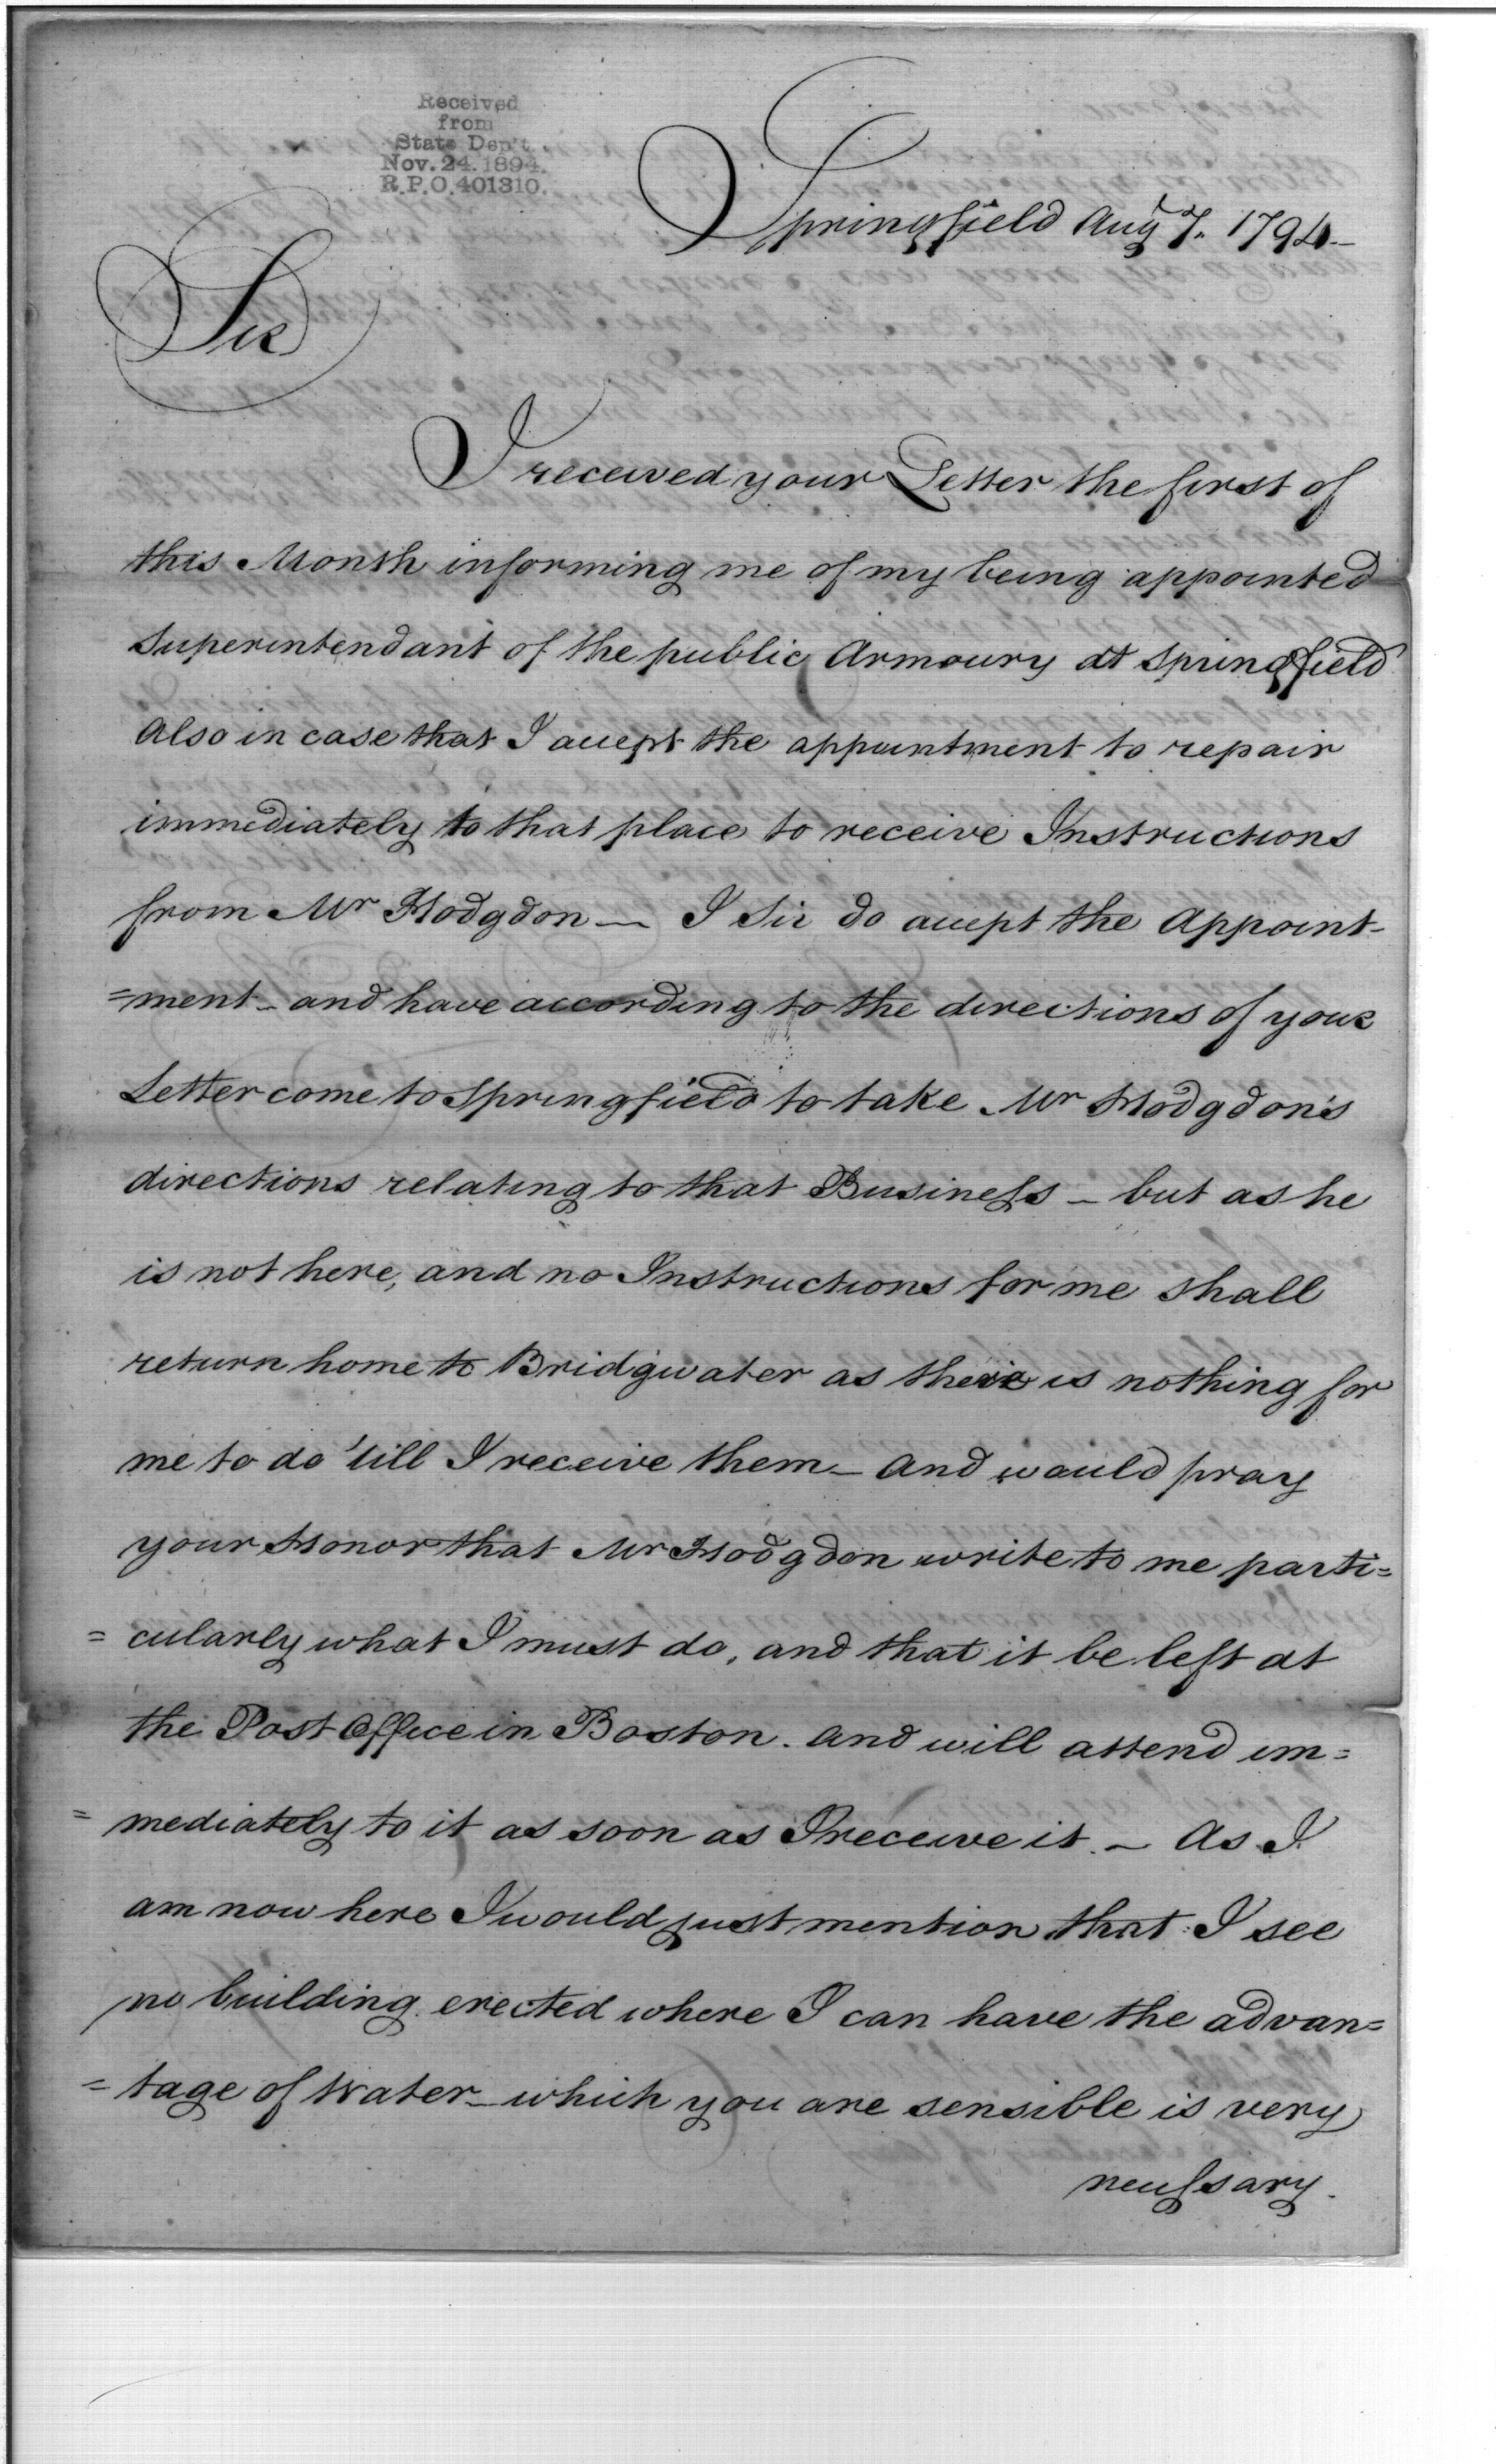 Received
from
State Dep't.
Nov. 24. 1894.
R.P.O. 401310.
Springfield Augt 7. 1794 —
Sir
I received your Letter the first of
this Month informing me of my being appointed
Superintendant of the public Armoury at Springfield
Also in case that I accept the appointment to repair
immediately to that place to receive Instructions
from Mr Hodgdon — I Sir do accept the Appoint-
=ment — and have according to the directions of your
Letter come to Springfield to take Mr Hodgdon's
directions relating to that Business — but as he
is not here, and no Instructions for me shall
return home to Bridgwater as there is nothing for
me to do 'till I receive them — and would pray
your Honor that Mr Hodgdon write to me parti=
=cularly what I must do, and that it be left at
the Post Office in Boston. and will attend im=
=mediately to it as soon as I receive it. — As I
am now here I would just mention that I see
no building erected where I can have the advan=
=tage of Water — which you are sensible is very
necessary.